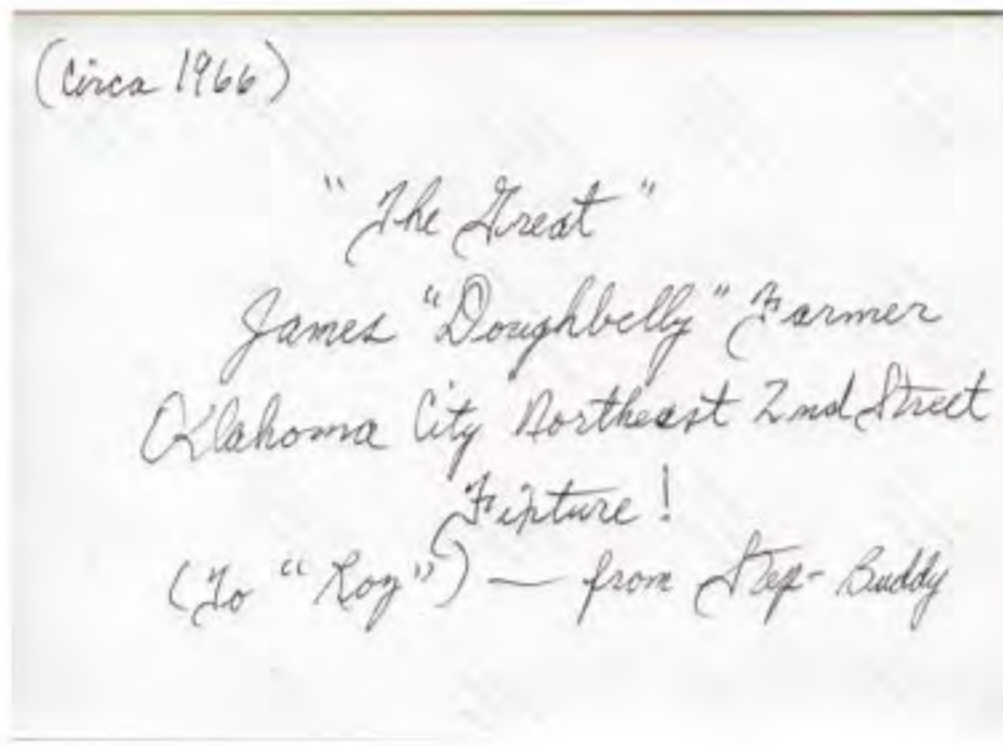 (Circa 1966)
"The Great"
James "Doughbelly" Farmer
Oklahoma City Northeast 2nd Street
Fixture!
(To "Roy") — from Step-Buddy